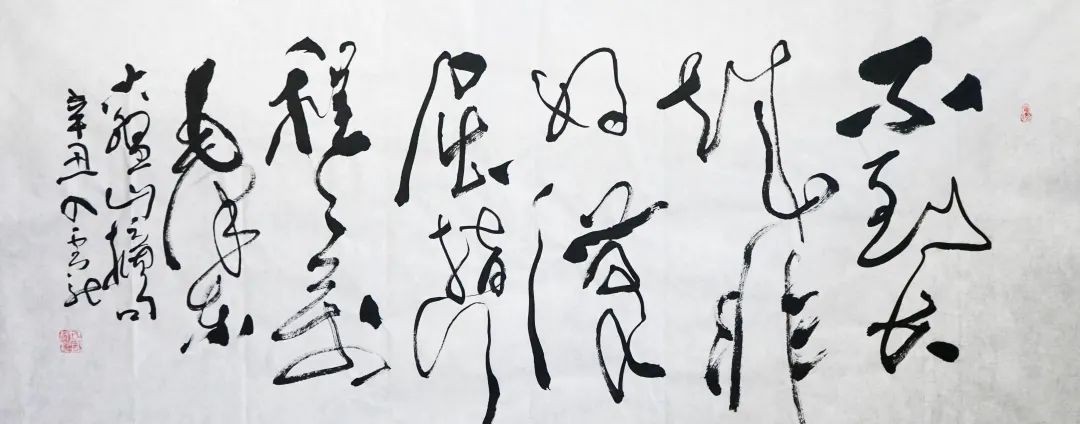 不到长
城非
好漢
屈指行
程二萬
毛泽东
六盘山摘句
辛丑